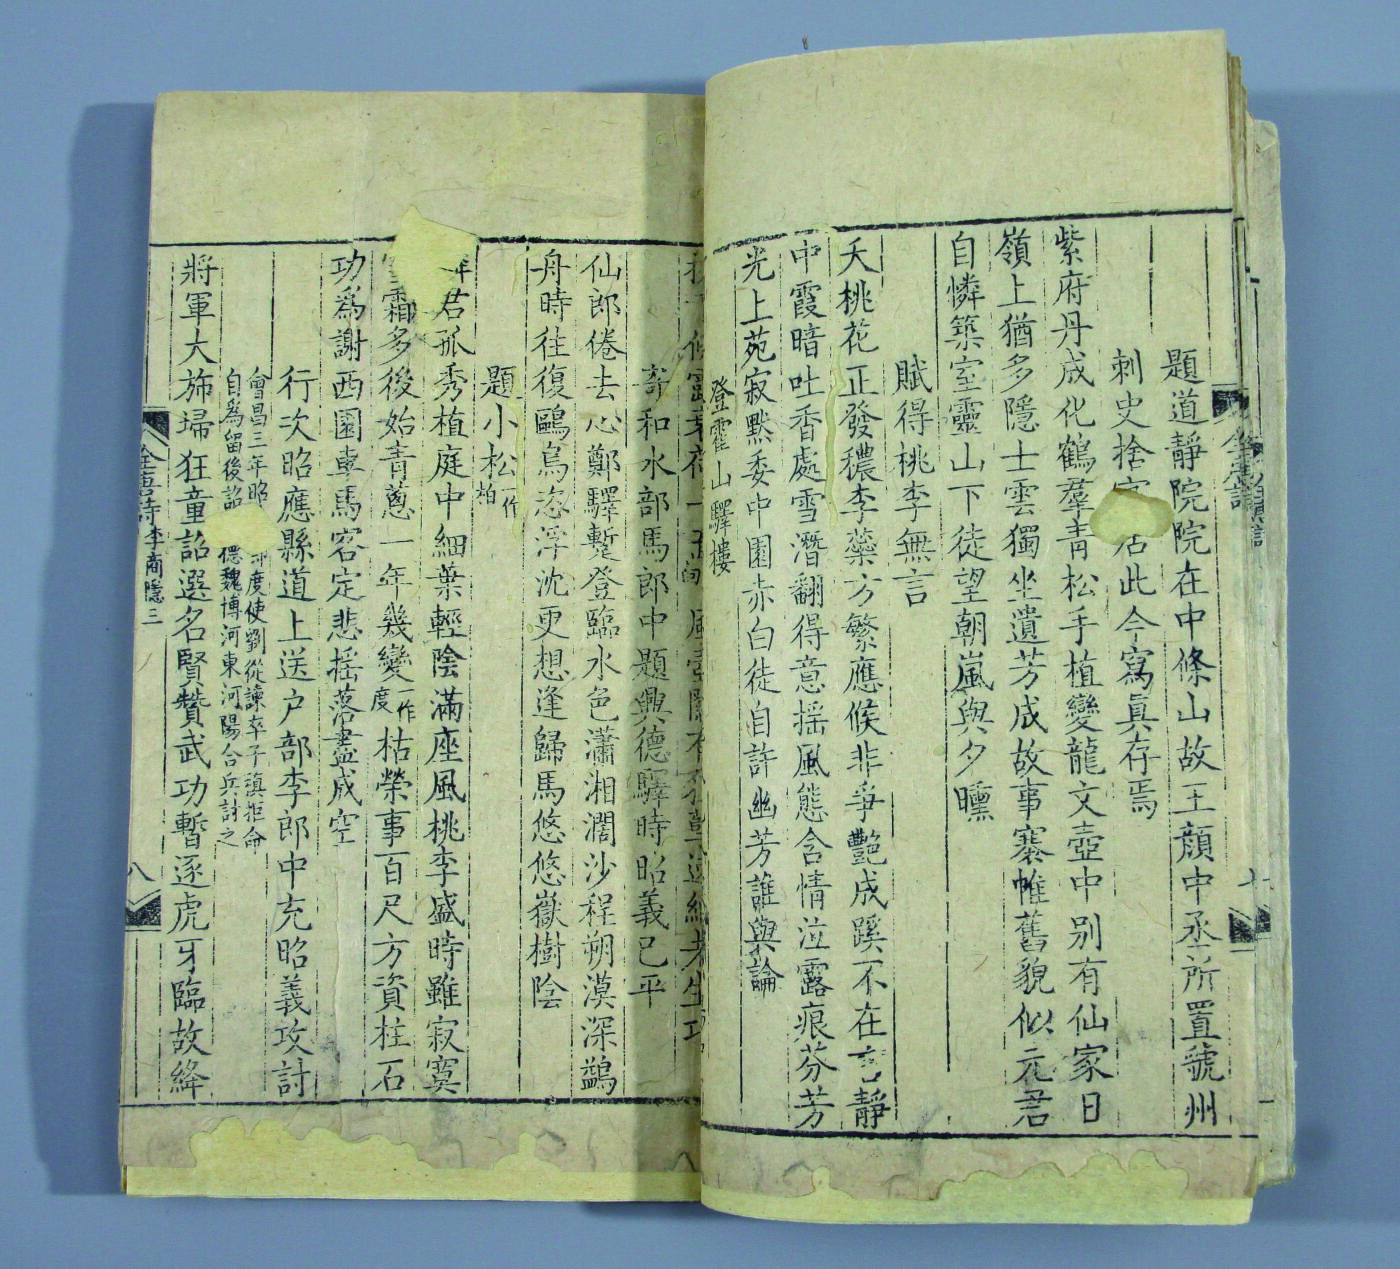 題道靜院院在中條山故王顏中丞所置虢州
刺史捨官居此今寫真存焉
紫府丹成化鶴羣青松手植變龍文壺中別有仙家日
嶺上猶多隱士雲獨坐遺芳成故事褰帷舊貌似元君
自憐築室靈山下徒望朝嵐與夕曛
賦得桃李無言
夭桃花正發穠李蘂方繁應候非爭艷成蹊不在言靜
中霞暗吐香處雪潛翻得意搖風態含情泣露痕芬芳
光上苑寂默委中園赤白徒自許幽芳誰與論
登霍山驛樓
寄和水部馬郎中題興德驛時昭義已平
仙郎倦去心鄭驛暫登臨水色瀟湘濶沙程朔漠深鷁
舟時往復鷗鳥恣浮沈更想逢歸馬悠悠嶽樹陰
題小松一作柏
君孤秀植庭中細葉輕陰滿座風桃李盛時雖寂寞
霜多後始青蔥一年幾變一作度枯榮事百尺方資柱石
功為謝西園車馬客定悲搖落盡成空
行次昭應縣道上送户部李郎中充昭義攻討
會昌三年昭 度使劉從諫卒子滇拒命
自為留後詔 德魏博河東河陽合兵討之
將軍大斾掃狂童詔選名賢贊武功暫逐虎牙臨故絳
全唐詩 李商隱三
八